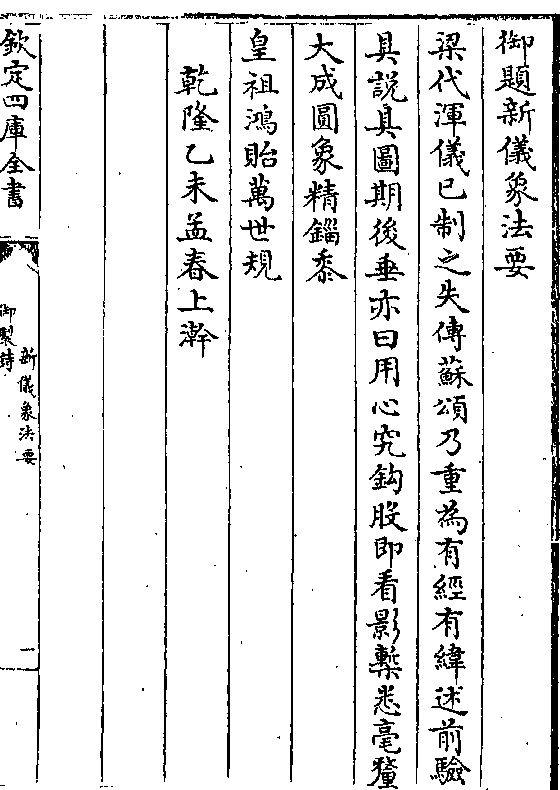 御題新儀象法要
梁代渾儀已制之失傳蘇頌乃重為有經有緯述前驗
具說具圖期後垂亦曰用心究鈎股即看影槧悉毫釐
大成圓象精錙黍
皇祖鴻貽萬世規
乾隆乙未孟春上澣
欽定四庫全書
御製詩
新儀象法要
一